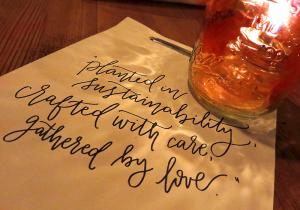 "planted in
sustainability,
crafted with care,
gathered by love."